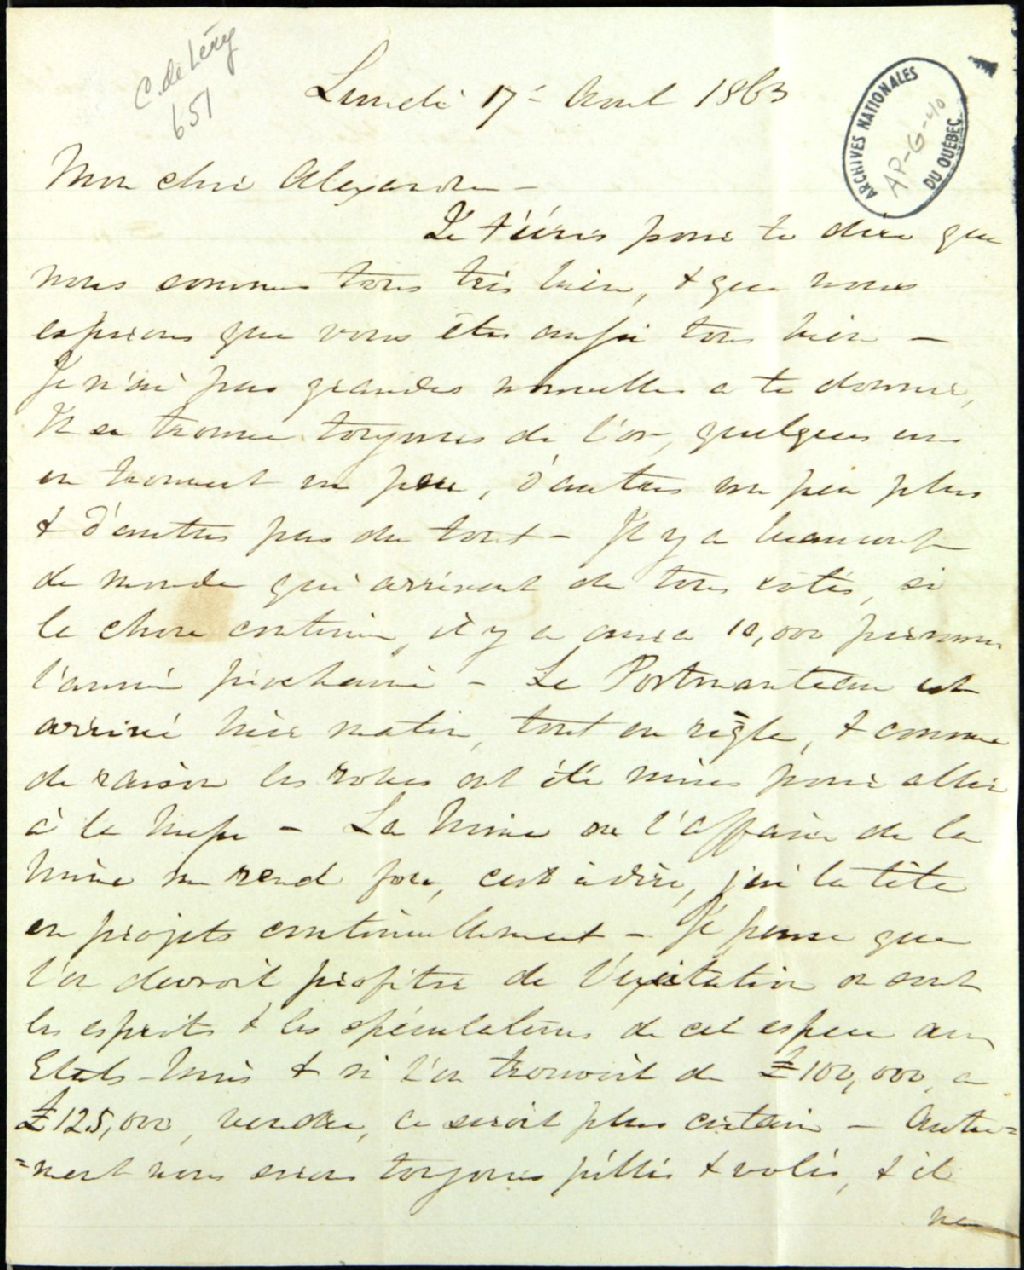 C. de Léry
651
ARCHIVES NATIONALES
DU QUÉBEC
AP-G-40
Lundi 17 - Aout 1863
Mon cher Alexandre -
Je t'écris pour te dire que
nous sommes tous très bien, & que nous
esperons que vous êtes aussi tous bien -
Je n'ai pas grandes nouvelles a te donner,
Il se trouve toujours de l'or, quelques uns
en trouvent un peu, d'autres un peu plus
& d'autres pas du tout - Il y a beaucoup
de monde qui arrivent de tous cotés, si
la chose continue, il y a aura 10,000 personnes
l'année prochaine - Le Portmanteau est
arrivé hier matin, tout en règle, & comme
de raison les robes ont été mises pour aller
à la Messe - La Mine ou l'affaire de la
Mine me rend fou, c'est à dire, j'ai la tête
en projets continuellement - Je pense que
l'on devroit profiter de l'exitation ou sont
les esprits & les spéculateurs de cet espece aux
Etats-Unis & si l'on trouvoit de £100,000, a
£125,000, vendre, ce seroit plus certain - Autre=
=ment nous serons toujours pillés & volés, & il
ne